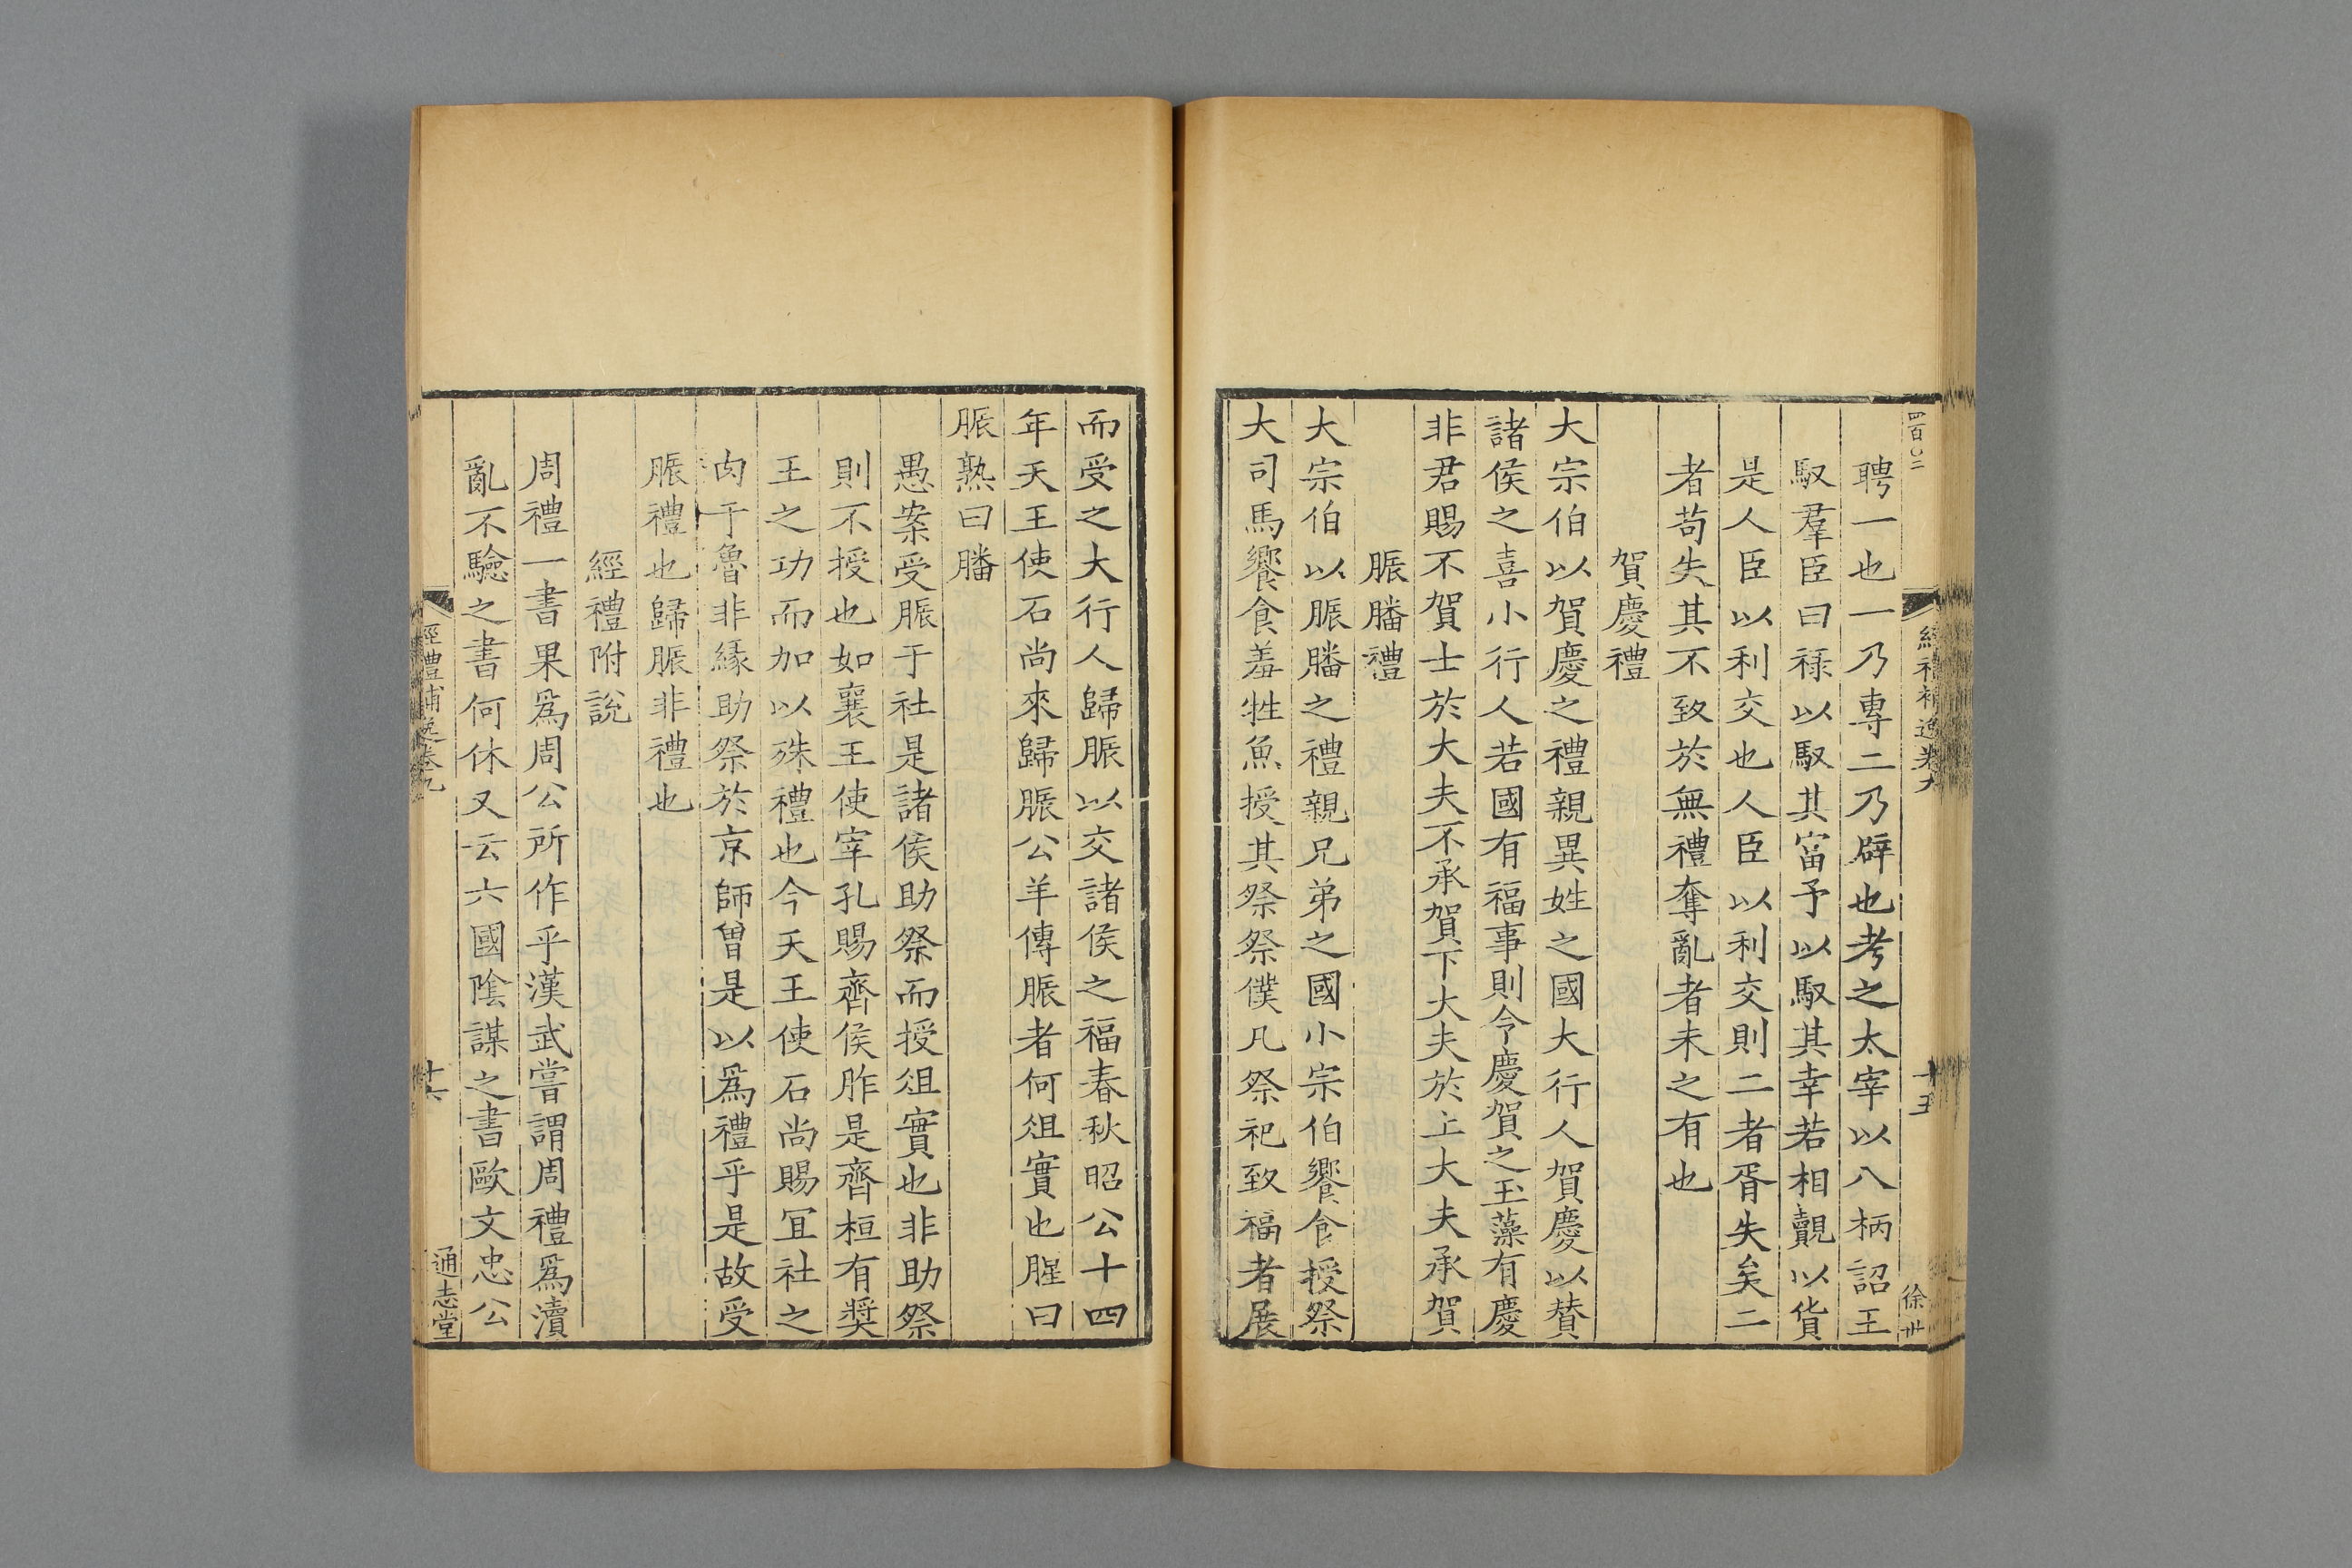 四百〇二
經禮補逸卷九
十五
徐卅
聘一也一乃專二乃辟也考之太宰以八柄詔王
馭羣臣曰祿以馭其富予以馭其幸若相覿以貨
是人臣以利交也人臣以利交則二者胥失矣二
者苟失其不致於無禮奪亂者未之有也
賀慶禮
大宗伯以賀慶之禮親異姓之國大行人賀慶以贊
諸侯之喜小行人若國有福事則令慶賀之玉藻有慶
非君賜不賀士於大夫不承賀下大夫於上大夫承賀
脤膰禮
大宗伯以脤膰之禮親兄弟之國小宗伯饗食授祭
大司馬饗食羞牲魚授其祭祭僕凡祭祀致福者展
而受之大行人歸脤以交諸侯之福春秋昭公十四
年天王使石尚來歸脤公羊傳脤者何俎實也腥曰
脤熟曰膰
愚案受脤于社是諸侯助祭而授俎實也非助祭
則不授也如襄王使宰孔賜齊侯胙是齊桓有奬
王之功而加以殊禮也今天王使石尚賜冝社之
肉于魯非緣助祭於京師曾是以爲禮乎是故受
脤禮也歸脤非禮也
經禮附說
周禮一書果爲周公所作乎漢武嘗謂周禮爲瀆
亂不驗之書何休又云六國陰謀之書歐文忠公
經禮補逸卷九
十六
通志堂